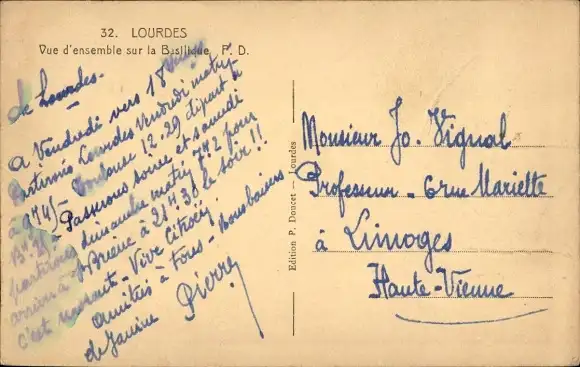 32. LOURDES
Vue d'ensemble sur la Basilique P. D.
de Lourdes -
A Vendredi vers 18
Lourdes Vendredi matin
à 9H45 - Toulouse 12.29 départ à
Passerons soirée et samedi
partirons dimanche matin 7H2 pour
arrivée à Brive à 21H30 le soir !!
c'est marrant - Vive Citroën
Amitiés à tous - Bons baisers
de Janine Pierre
Edition P. Doucet - Lourdes
Monsieur Jo. Vignal
Professeur - 6 rue Mariette
à Limoges
Haute-Vienne